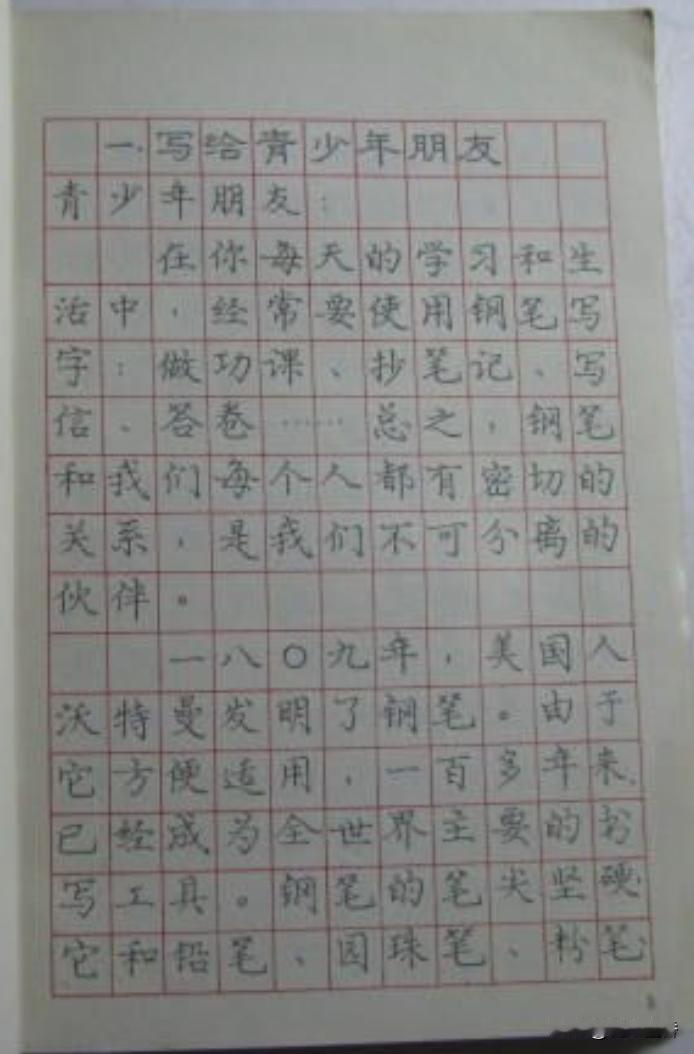 一.写给青少年朋友
青少年朋友：
在你每天的学习和生
活中，经常要使用钢笔写
字：做功课、抄笔记、写
信、答卷……总之，钢笔
和我们每个人都有密切的
关系，是我们不可分离的
伙伴。
一八〇九年，美国人
沃特曼发明了钢笔。由于
它方便适用，一百多年来，
已经成为全世界主要的书
写工具。钢笔的笔尖坚硬，
它和铅笔、园珠笔、粉笔